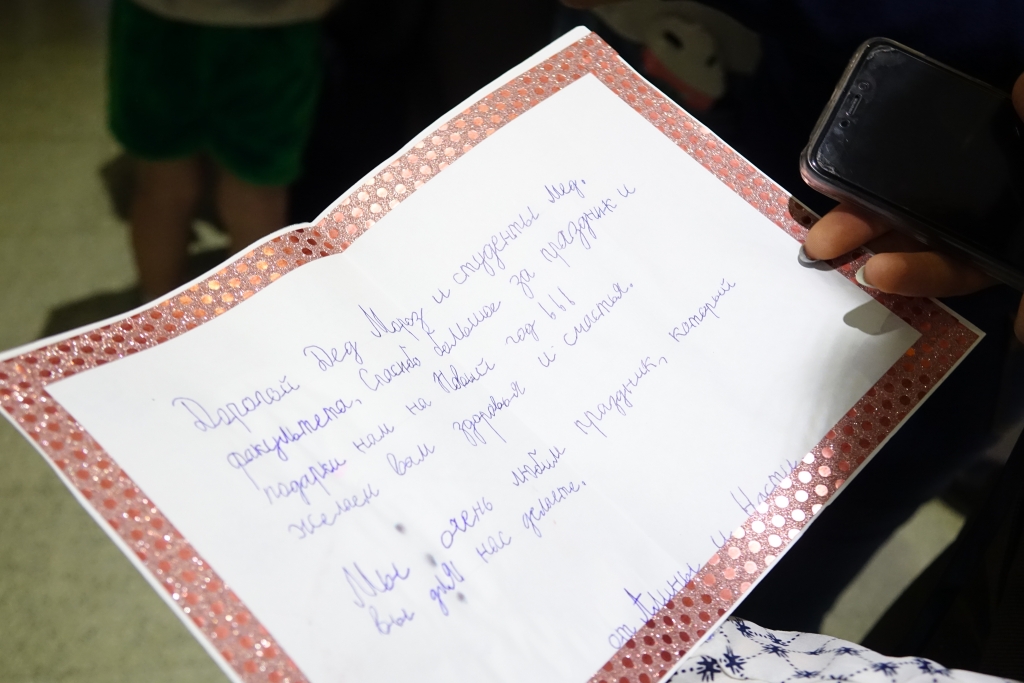 Дорогой Дед Мороз и студенты мед.
факультета, Спасибо большое за праздник и
подарки нам на Новый год !!!
Желаем вам здоровья и счастья.
Мы очень любим праздник, каторый
вы для нас делаете.
от Алины и Насти